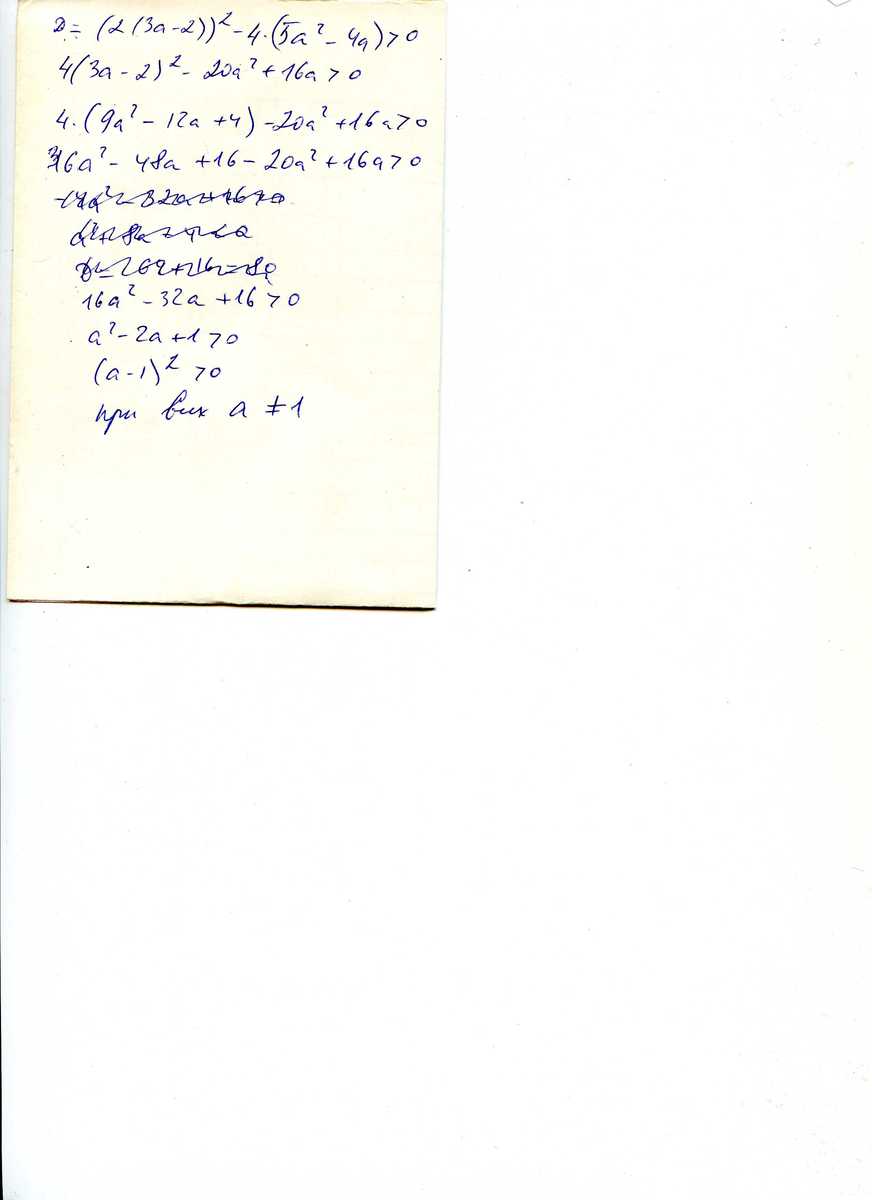 D = (2(3a-2))² - 4·(5a² - 4a) > 0
4(3a-2)² - 20a² + 16a > 0
4·(9a² - 12a + 4) - 20a² + 16a > 0
36a² - 48a + 16 - 20a² + 16a > 0
16a² - 32a + 16 > 0
a² - 2a + 1 > 0
(a-1)² > 0
при всех a ≠ 1